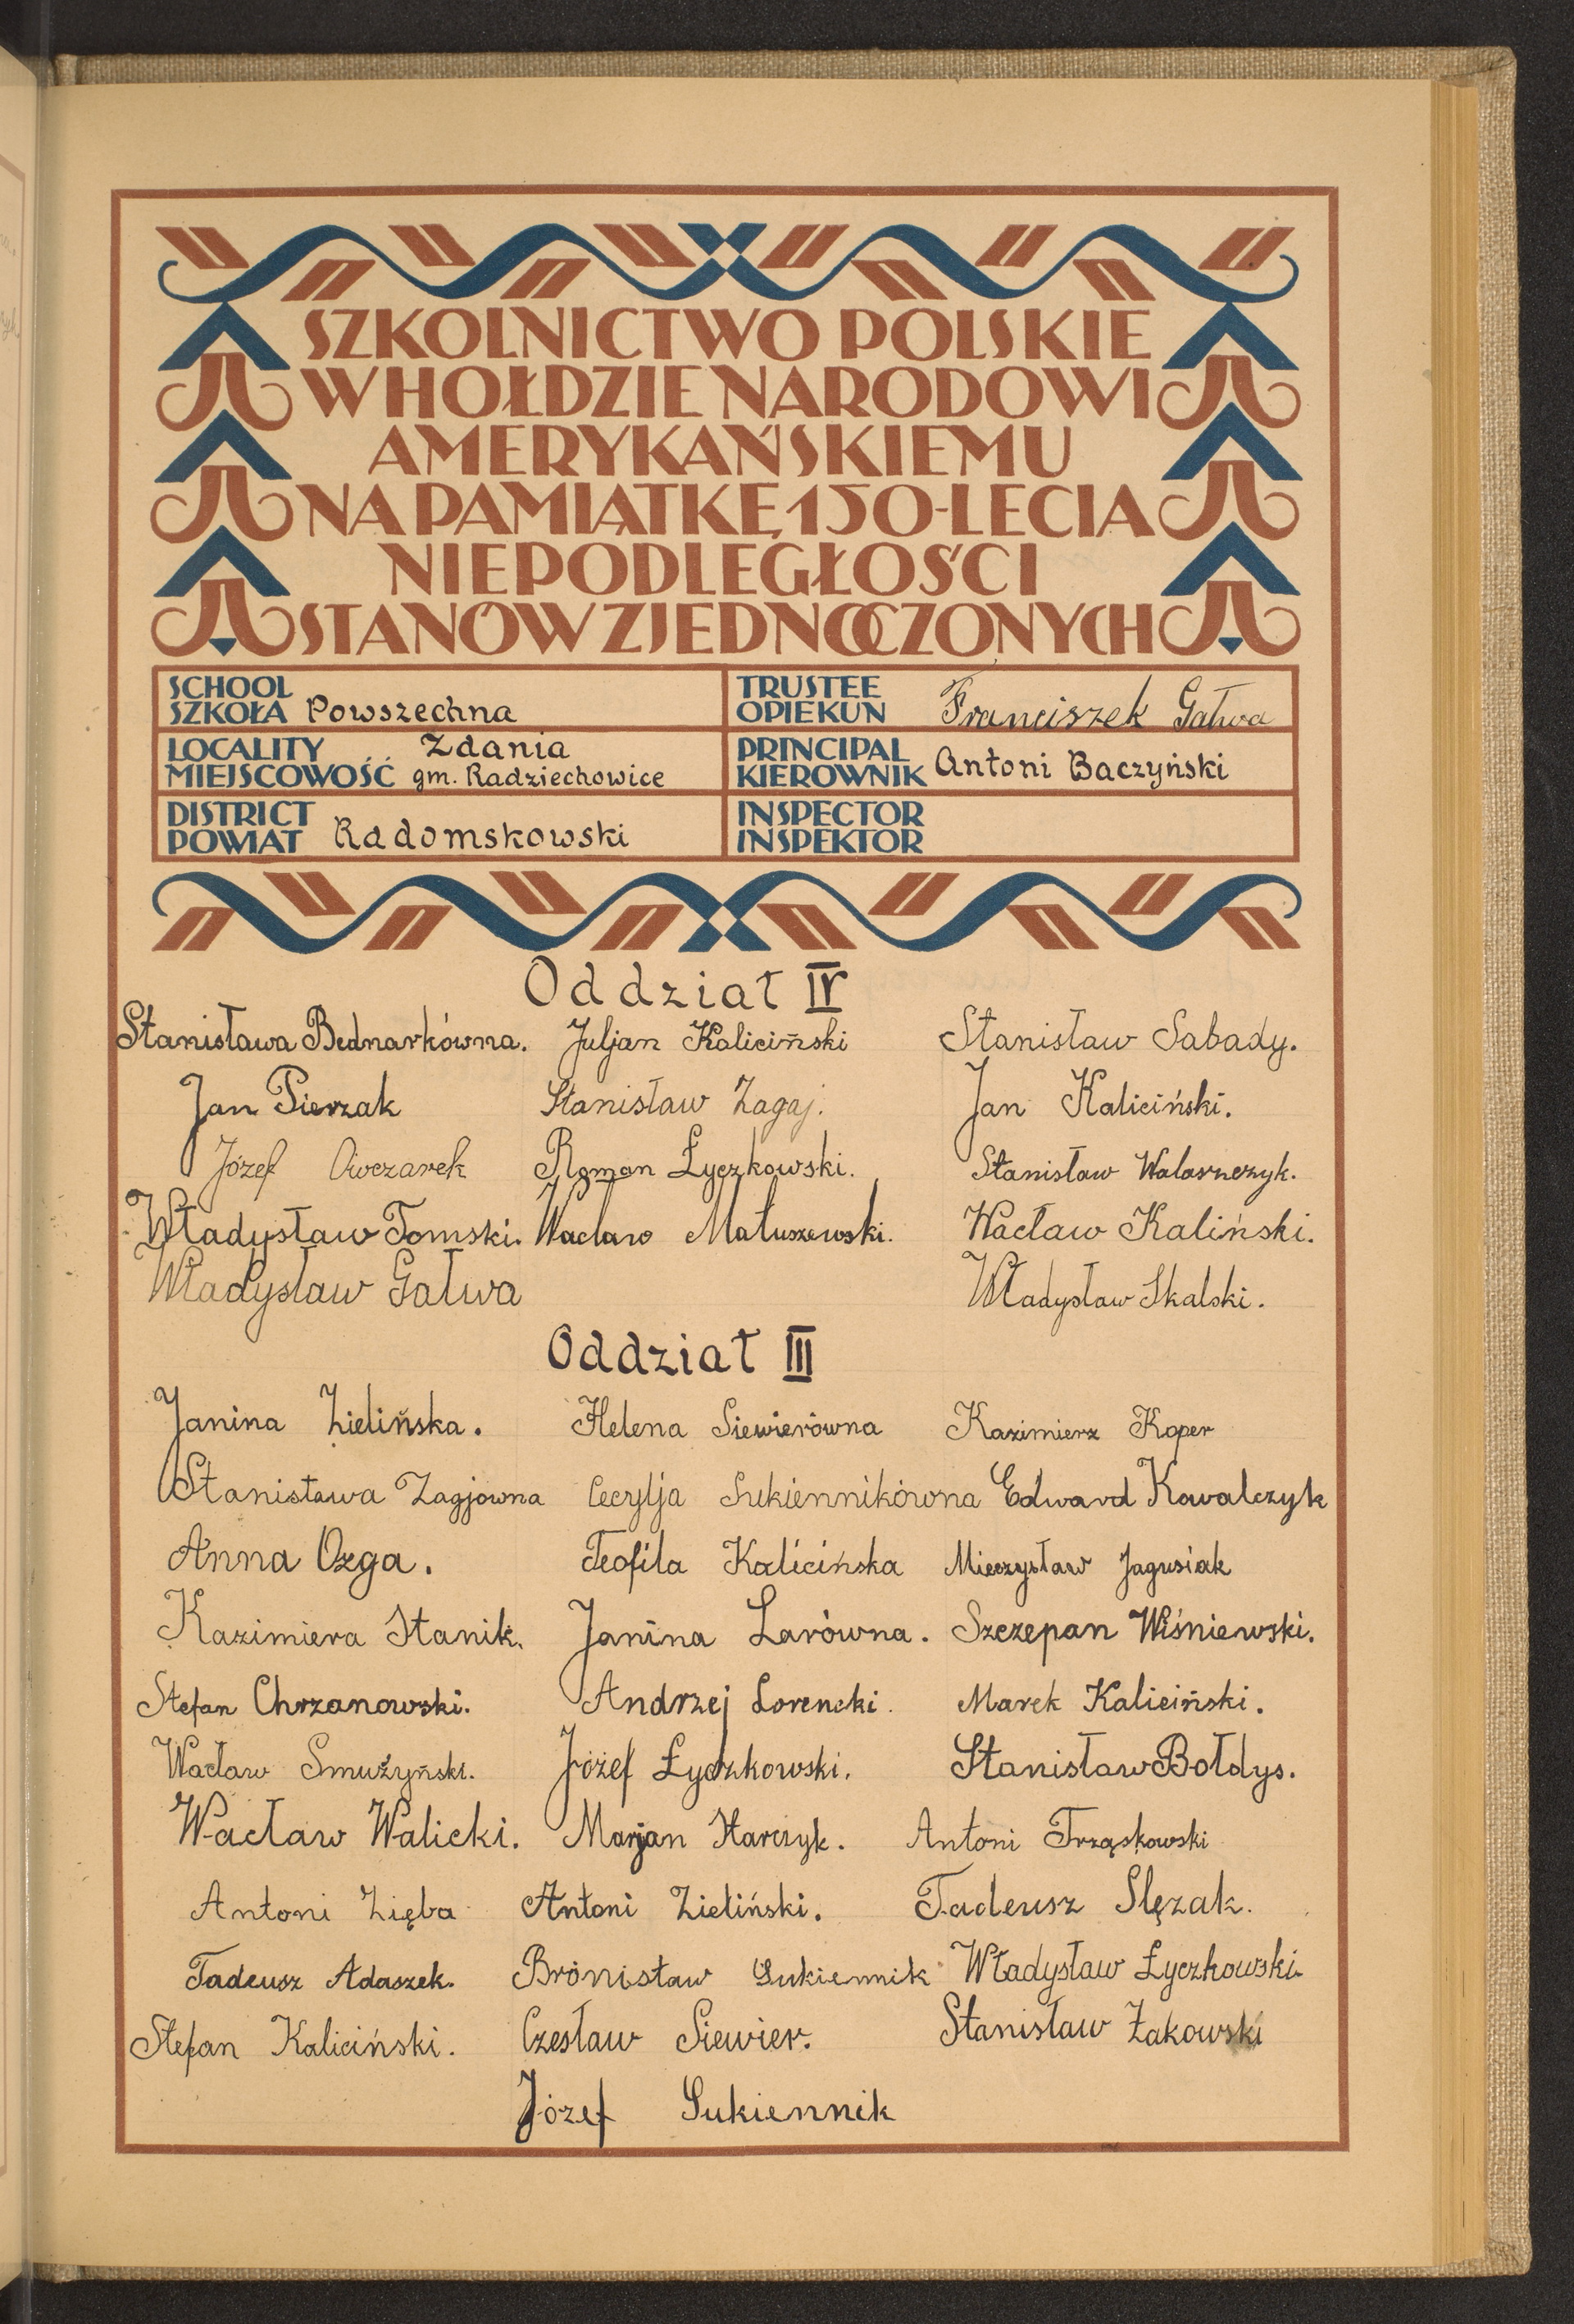 SZKOLNICTWO POLSKIE
W HOŁDZIE NARODOWI
AMERYKAŃSKIEMU
NA PAMIĄTKĘ 150-LECIA
NIEPODLEGŁOŚCI
STANÓW ZJEDNOCZONYCH
SCHOOL
SZKOŁA Powszechna
TRUSTEE
OPIEKUN Franciszek Gałwa
LOCALITY Zdania
MIEJSCOWOŚĆ gm. Radziechowice
PRINCIPAL
KIEROWNIK Antoni Baczyński
DISTRICT
POWIAT Radomskowski
INSPECTOR
INSPEKTOR
Oddział IV
Stanisława Bednarkówna. Juljan Kaliciński Stanisław Sabady.
Jan Pierzak Stanisław Zagaj. Jan Kaliciński.
Józef Owczarek Roman Łyczkowski. Stanisław Walaszczyk.
Władysław Tomski. Wacław Matuszewski. Wacław Kaliński.
Władysław Gałwa Władysław Skalski.
Oddział III
Janina Zielińska. Helena Siewierówna Kazimierz Koper
Stanisława Zagjowna Cecylja Sukiennikówna Edward Kowalczyk
Anna Ozga. Teofila Kalicińska Mieczysław Jagusiak
Kazimiera Stanik. Janina Larówna. Szczepan Wiśniewski.
Stefan Chrzanowski. Andrzej Lorencki. Marek Kaliciński.
Wacław Smużyński. Józef Łyczkowski. Stanisław Bołdys.
Wacław Walicki. Marjan Harczyk. Antoni Trząskowski
Antoni Zięba Antoni Zieliński. Tadeusz Slęzak.
Tadeusz Adaszek. Bronisław Sukiennik Władysław Łyczkowski.
Stefan Kaliciński. Czesław Siewier. Stanisław Żakowski
Józef Sukiennik